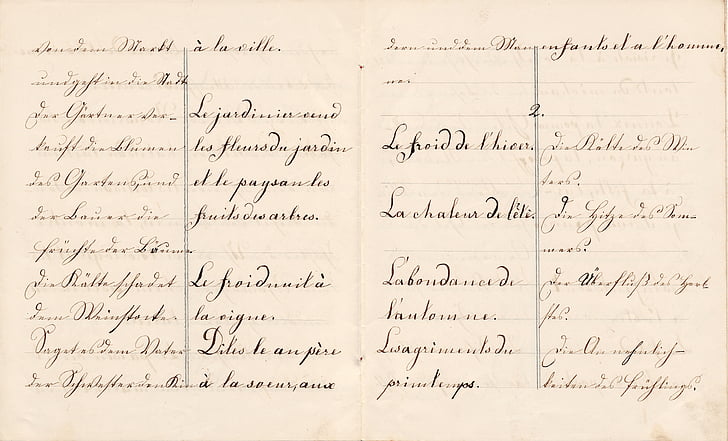 von dem Markt
und geht in die Stadt
Der Gärtner ver-
kauft die Blumen
des Gartens, und
der Bauer die
Früchte der Bäume
Die Kälte schadet
dem Weinstocke.
Saget es dem Vater
der Schwester den Kin
à la ville.
Le jardinier vend
les fleurs du jardin
et le paysan les
fruits des arbres.
Le froid nuit à
la vigne.
Dites le au père
à la soeur, aux
dern und dem Man
enfants et a l'homme.
2.
Le froid de l'hiver.
La chaleur de l'été.
L'abondance de
l'automne.
Les agriments du
printemps.
Die Kälte des Win
ters.
Die Hitze des Som-
mers.
Der Überfluß des Herb
stes.
Die Annehmlich-
keiten des Frühlings.